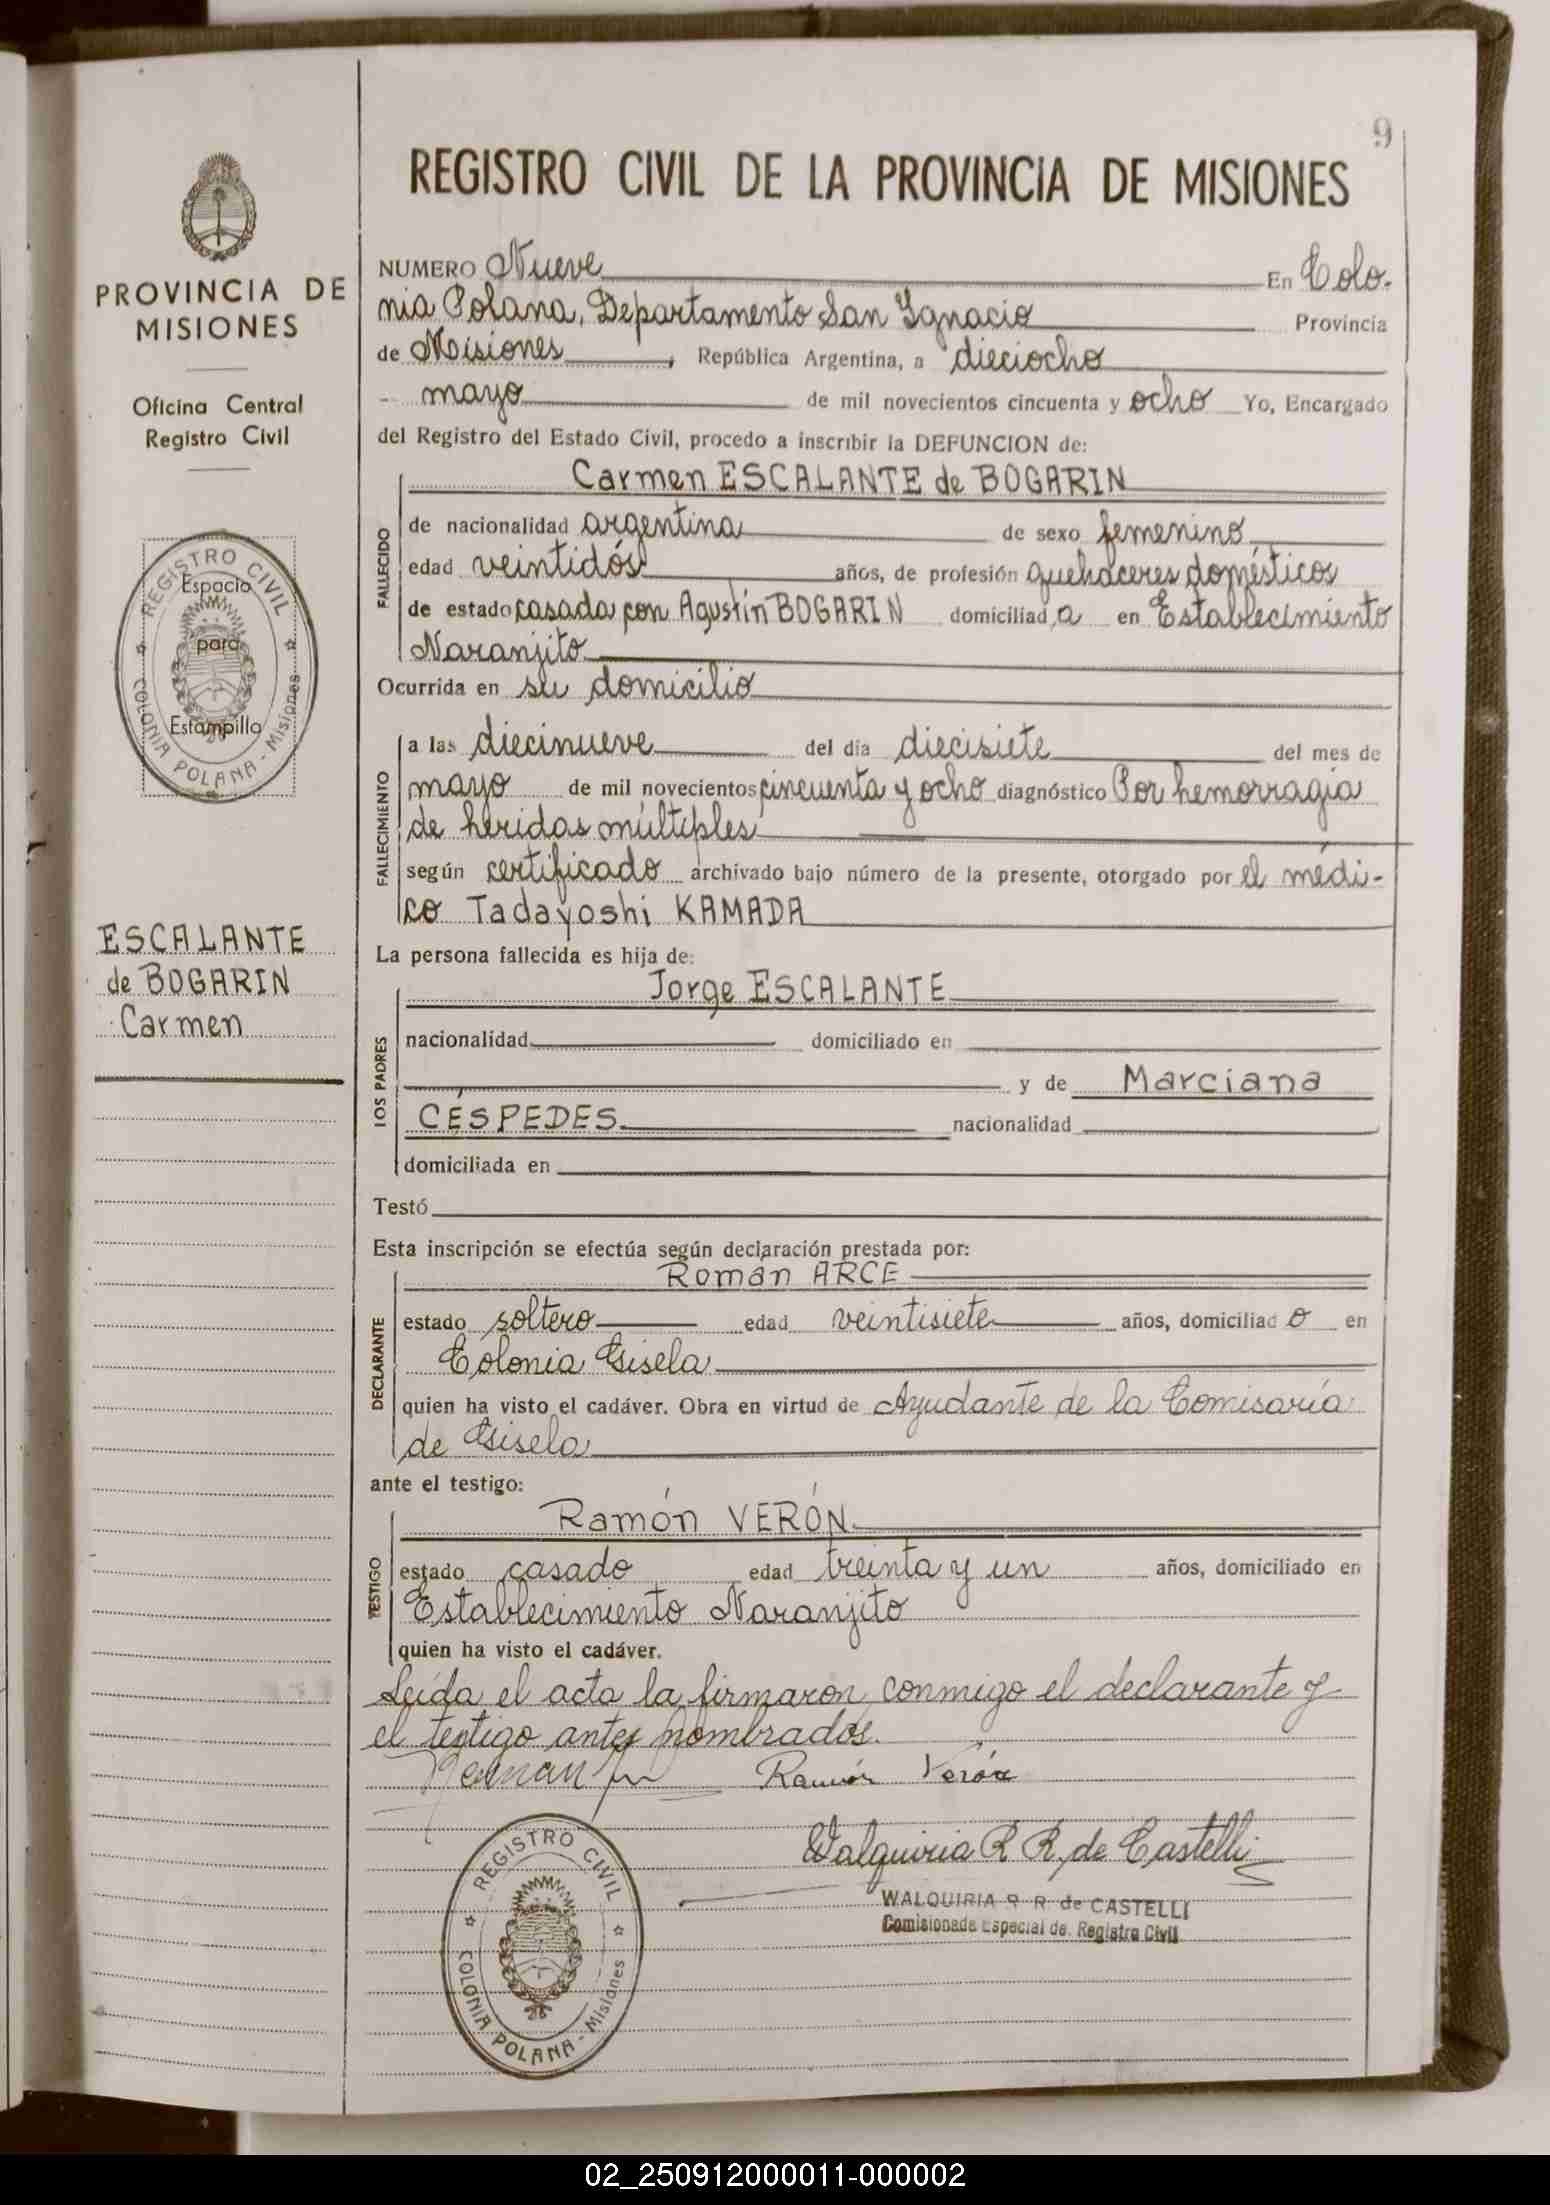 9
REGISTRO CIVIL DE LA PROVINCIA DE MISIONES
PROVINCIA DE
MISIONES
Oficina Central
Registro Civil
REGISTRO CIVIL
Espacio
para
Estampilla
26
COLONIA POLANA - Misiones
ESCALANTE
de BOGARIN
Carmen
NUMERO Nueve En Colo-
nia Polana, Departamento San Ignacio Provincia
de Misiones, República Argentina, a dieciocho
mayo de mil novecientos cincuenta y ocho Yo, Encargado
del Registro del Estado Civil, procedo a inscribir la DEFUNCION de:
Carmen ESCALANTE de BOGARIN
FALLECIDO
de nacionalidad argentina de sexo femenino
edad veintidós años, de profesión quehaceres domésticos
de estado casada con Agustín BOGARIN domiciliad a en Establecimiento
Naranjito
Ocurrida en su domicilio
FALLECIMIENTO
a las diecinueve del día diecisiete del mes de
mayo de mil novecientos cincuenta y ocho diagnóstico Por hemorragia
de heridas múltiples
según certificado archivado bajo número de la presente, otorgado por el médi-
co Tadayoshi KAMADA
La persona fallecida es hija de:
LOS PADRES
Jorge ESCALANTE
nacionalidad domiciliado en
y de Marciana
CÉSPEDES nacionalidad
domiciliada en
Testó
Esta inscripción se efectúa según declaración prestada por:
DECLARANTE
Román ARCE
estado soltero edad veintisiete años, domiciliad o en
Colonia Gisela
quien ha visto el cadáver. Obra en virtud de Ayudante de la Comisaría
de Gisela
ante el testigo:
TESTIGO
Ramón VERÓN
estado casado edad treinta y un años, domiciliado en
Establecimiento Naranjito
quien ha visto el cadáver.
Leída el acta la firmaron conmigo el declarante y
el testigo antes nombrados.
Ramón Verón
Walquiria R R. de Castelli
WALQUIRIA R R. de CASTELLI
Comisionada Especial de Registro Civil
REGISTRO CIVIL
26
COLONIA POLANA - Misiones
02_250912000011-000002